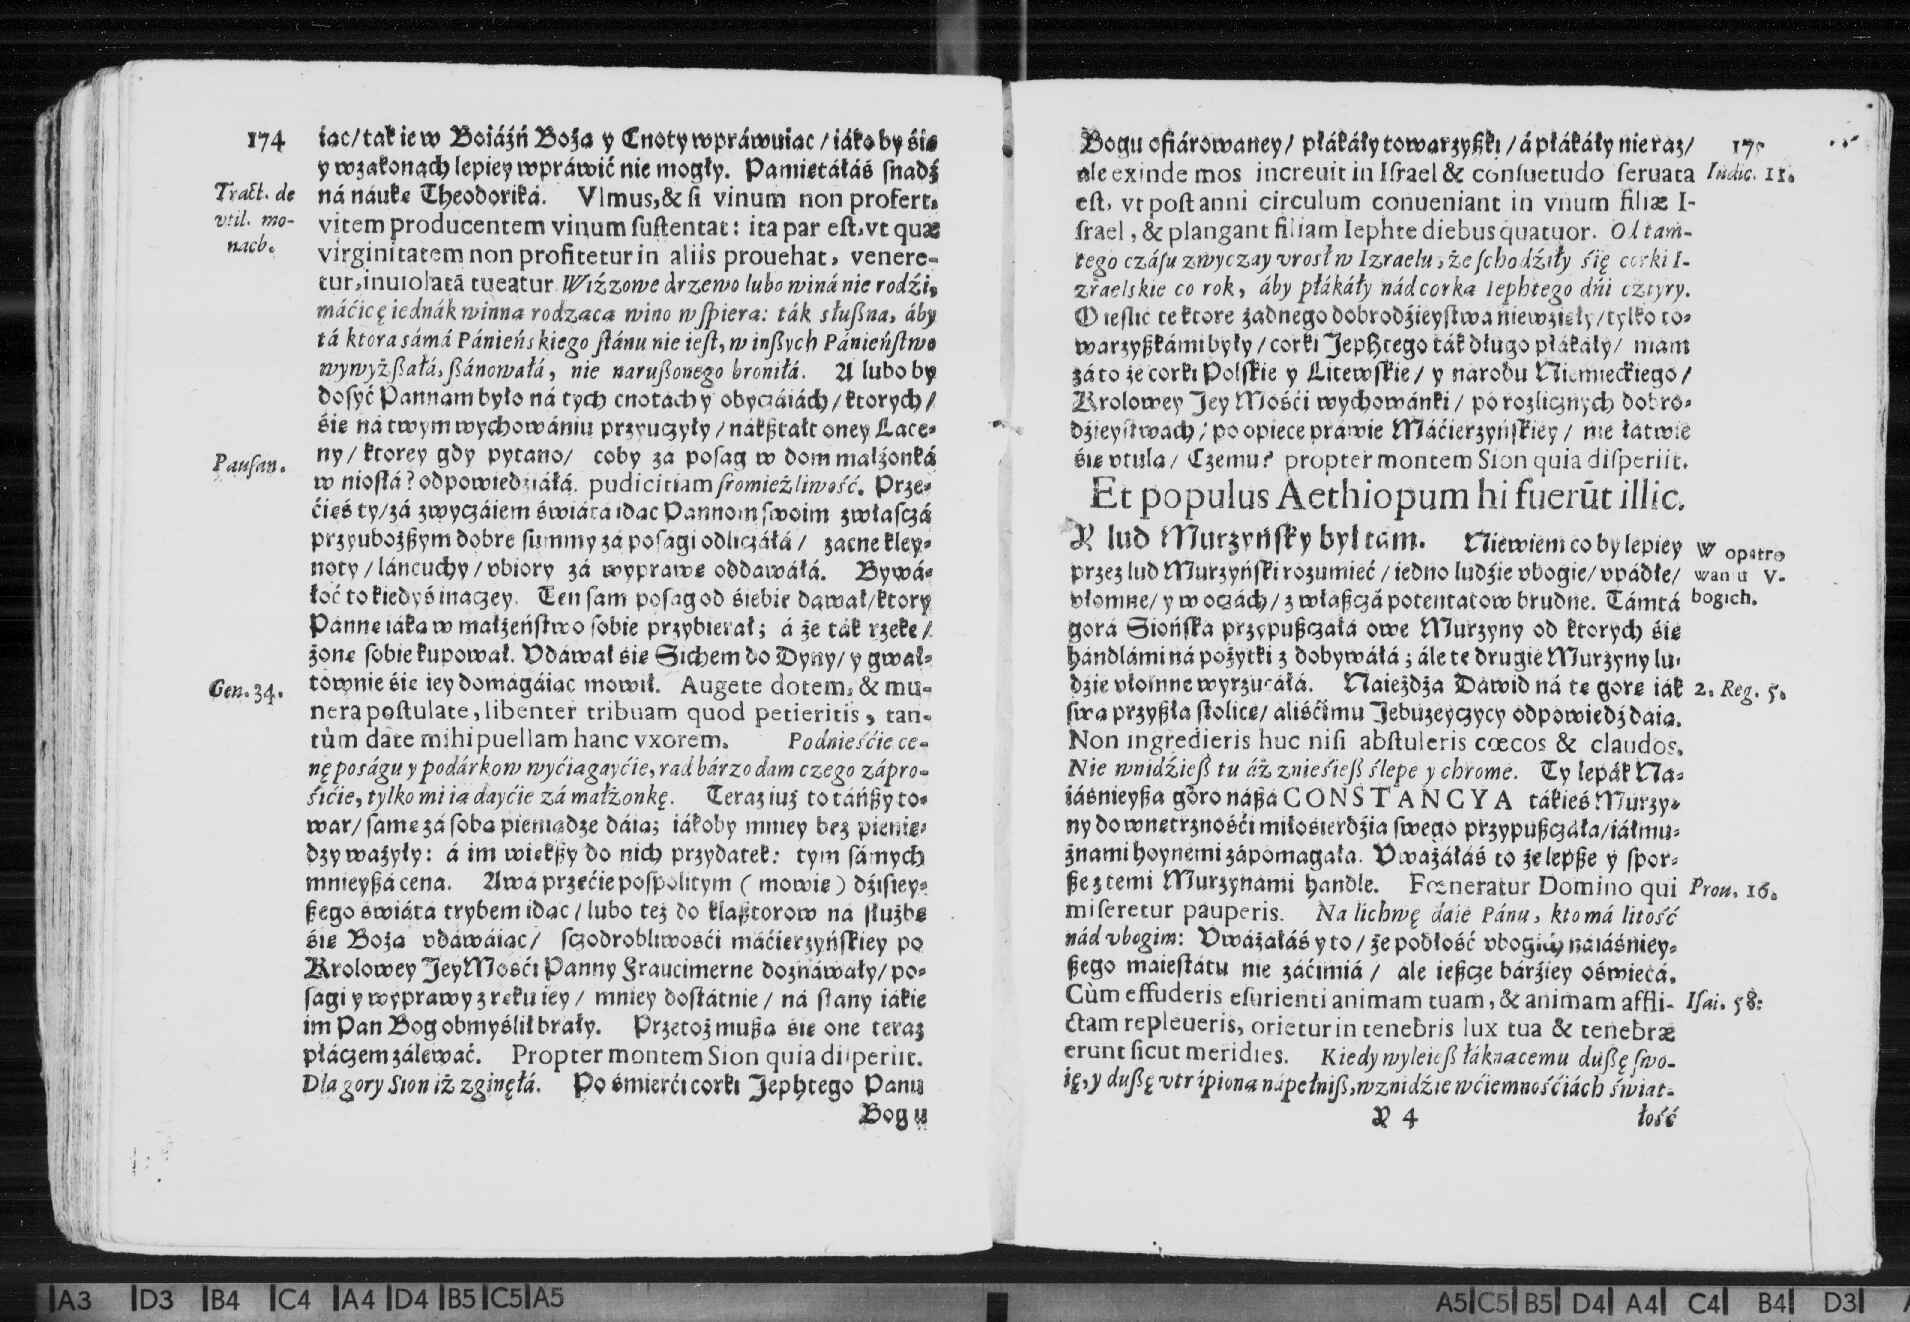 174
iac/tak ie w Boiáźń Boża y Cnoty wpráwuiac/iáko by śie
y w zakonach lepiey wpráwić nie mogły. Pamietáłáś snadź
Tract. de
vtil. mo-
nach.
ná náuke Theodoriká. Vlmus,& si vinum non profert,
vitem producentem vinum sustentat: ita par est, vt quæ
virginitatem non profitetur in aliis prouehat, venere-
tur, inuiolatã tueatur. Wiźzowe drzewo lubo winá nie rodźi,
máćicę iednák winna rodzaca wino wspiera: ták słußna, áby
tá ktora sámá Pánieńskiego stánu nie iest, w inßych Pánieństwo
wywyżßáłá, ßánowáłá, nie narußonego broniłá. A lubo by
dosyć Pannam było ná tych cnotách y obyczáiách/ktorych/
śie ná twym wychowániu przyuczyły/nákßtałt oney Lace-
Pausan.
ny/ktorey gdy pytano/ coby za posag w dom małżonká
w niosłá? odpowiedziáłá. pudicitiam sromieżliwość. Prze-
ćięś ty/zá zwyczáiem świátá idac Pannom swoim zwłasczá
przyuboższym dobre summy zá posagi odliczáłá/ zacne kley-
noty/láncuchy/vbiory zá wyprawe oddawáłá. Bywá-
łoć to kiedyś inaczey. Ten sam posag od śiebie dawał/ktory
Panne iáka w małżeństwo sobie przybierał; á że ták rzeke/
żone sobie kupował. Vdawał śie Sichem do Dyny/y gwał-
Gen. 34.
townie śie iey domágáiac mowił. Augete dotem, & mu-
nera postulate, libenter tribuam quod petieritis, tan-
tùm date mihi puellam hanc vxorem. Podnieśćie ce-
nę poságu y podárkow wyćiagayćie, rad bárzo dam czego zápro-
śićie, tylko mi ia dayćie zá małżonkę. Teraz iuż to táńßy to-
war/same zá soba pieniadze dáia; iákoby mniey bez pienie-
dzy ważyły: á im wiekßy do nich przydatek: tym sámych
mnieyßá cena. Awá przećie pospolitym (mowie) dźisiey-
ßego świátá trybem idac/lubo też do klaßtorow ná służbe
śie Boża vdawáiac/ sczodrobliwośći máćierzyńskiey po
Krolowey Jey Mośći Panny Fraucimerne doznáwáły/po-
sagi y wyprawy z reku iey/ mniey dostátnie/ ná stany iákie
im Pan Bog obmyślił bráły. Przetoż mußa śie one teraz
płáczem zálewáć. Propter montem Sion quia disperiit.
Dla gory Sion iż zginęłá. Po śmierći corki Jephtego Panu
Bogu
175
Bogu ofiárowaney/ płákáły towarzyßki/á płákáły nie raz/
Iudic. 11.
ale exinde mos increuit in Israel & consuetudo seruata
est, vt post anni circulum conueniant in vnum filiæ I-
srael, & plangant filiam Iephte diebus quatuor. Ol tam-
tego czásu zwyczay vrosł w Izraelu, że schodźiły śię corki I-
zraelskie co rok, áby płákáły nád corka Iephtego dńi cztyry.
O ieslić te ktore żadnego dobrodźieystwa nie wźieły/tylko to-
warzyßkámi były/corki Jephtego ták długo płákáły/ mam
zá to że corki Polskie y Litewskie/ y narodu Niemieckiego/
Krolowey Jey Mośći wychowánki/ po rozlicznych dobro-
dźieystwach/po opiece práwie Máćierzyńskiey/ nie łatwie
śie vtula/ Czemu? propter montem Sion quia disperiit.
Et populus Aethiopum hi fuerũt illic.
Y lud Murzyńsky był tam. Niewiem co by lepiey
W opatro
wan u V-
bogich.
przez lud Murzyński rozumieć/iedno ludźie vbogie/vpádłe/
vłomne/y w oczách/z właßczá potentatow brudne. Támtá
gorá Siońska przypußczałá owe Murzyny od ktorych śie
hándlámi ná pożytki z dobywáłá; ále te drugie Murzyny lu-
dźie vłomne wyrzucáłá. Naieżdża Dawid ná te gore iák
2. Reg. 5.
swa przyßła stolice/aliśćimu Jebuzeyczycy odpowiedź dáia.
Non ingredieris huc nisi abstuleris cœcos & claudos.
Nie wnidźieß tu áż znieśieß ślepe y chrome. Ty lepák Na-
iáśnieyßa goro náßá CONSTANCYA tákieś Murzy-
ny do wnetrznośći miłosierdźia swego przypußczáła/iáłmu-
żnami hoynemi zápomagała. Vważáłáś to że lepße y spor-
ße z temi Murzynámi hándle. Fœneratur Domino qui
Prou. 16.
miseretur pauperis. Na lichwę daie Pánu, kto má litość
nád vbogim: Vważáłáś y to/ że podłość vbogich náiáśniey-
ßego maiestatu nie záćimiá/ ale ießcze bárźiey oświecá.
Cùm effuderis esurienti animam tuam, & animam affli-
Isai. 58.
ctam repleueris, orietur in tenebris lux tua & tenebræ
erunt sicut meridies. Kiedy wyleieß łáknacemu dußę swo-
ię, y dußę vtrapiona nápełniß, wznidźie w ćiemnośćiách świat-
Y 4
łość
A3 D3 B4 C4 A4 D4 B5 C5 A5
A5 C5 B5 D4 A4 C4 B4 D3